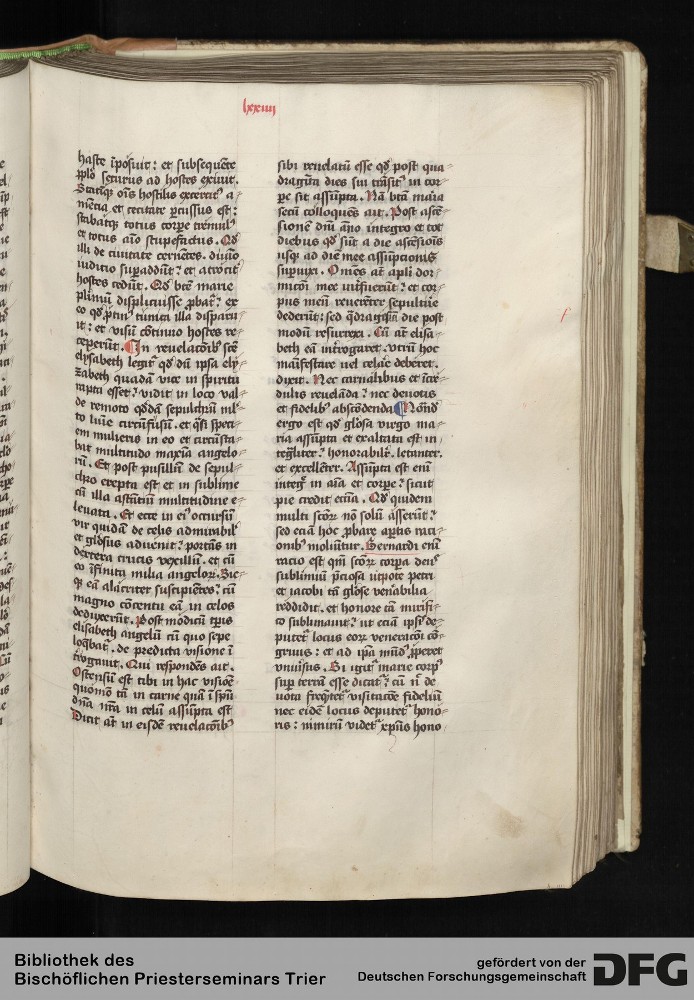 lxxiiii
haste īposuit : et subsequēte
pplō securus ad hostes exiuit.
Statīq̄ oīs hostilis exercit⁹ a=
mētia et cecitate p̄cussus est :
stabatq̄ totus corpe tremul⁹
et totus aīo stupefactus. Qd̄
illi de ciuitate cernētes. diuīo
iudicio supaddūt : et atrocit͛
hostes cedūt. Qd̄ btē marie
plimū displicuisse ꝓbat͛ : ex
eo qd̄ ptin⁹ tunica illa disparu=
it : et visū cōtinuo hostes re=
ceperūt. In reuelacōib⁹ scē
elysabeth legit͛ qd̄ dū ipsa ely=
zabeth quadā vice in spiritu
rapta esset : vidit in loco val=
de remoto qd̄dā sepulchrū ml=
to lumīe circūfusū. et q̄si speci=
em mulieris in eo et circūsta=
bat multitudo maxīa angelo=
rū. Et post pusillū de sepul=
chro erepta est et in sublime
cū illa astātiū multitudine e=
leuata. Et ecce in ei⁹ occursū
vir quidā de celis admirabil'
et glōsus aduenit : portās in
dextera crucis vexillū. et cū
eo īfinita milia angelor̄. Sic=
q̄ eā alacriter suscipiētes : cū
magno cōcentu eā in celos
deduxerūt. Post modicū tp̄is
elisabeth angelū cū quo sepe
loq̄bat͛. de predicta visione ī
t͛rogauit. Qui respondēs ait.
Ostensū est tibi in hac visiōe
quomō tā in carne quā ī spū
dn̄a nr̄a in celū assūpta est
Dicit at̄ in eisdē reuelacōib⁹
sibi reuelatū esse qd̄ post qua=
dragīta dies sui trāsit⁹ in cor=
pe sit assūpta. Nā btā maria
secū colloquēs ait. Post ascē=
sionē dn̄i āno integro et tot
diebus qd̄ sūt a die ascēsiōis
usq̄ ad diē mee assūpcionis
supuixi. Om̄es at̄ apli dor=
micōi mee int͛fuerūt : et cor=
pus meū reuerēter sepulture
dederūt : sed q̄dragīta die post
modū resurrexi. Cū at̄ elisa=
beth eā int͛rogaret. vtrū hoc
māifestare uel celare deberet.
dixit. Nec carnalibus et īcre=
dulis reuelāda : nec deuotis
et fidelib⁹ abscōdenda Notād'
ergo est qd̄ glōsa virgo ma=
ria assūpta et exaltata est in=
teg̃liter : honorabilr̄. letanter.
et excellēter. Assūpta est enī
integ̃ in aīa et corpe : sicut
pie credit ecīa. Qd̄ quidem
multi scōr̄ nō solū asserūt :
sed eciā hoc ꝓbare aptis raci=
onib⁹ moliūtur. Bernardi enī
racio est qm̄ scōr̄ corpa deus
sublimiū p̄ciosa utpote petri
et iacobi tā glōse venābilia
reddidit. et honore tā mirifi=
co sublimauit : ut eciā ipsī⁹ de=
putet͛ locus eor̄ veneracōi cō=
gruus : et ad ipā mūd⁹ ꝓperet
vniūsus. Si igit͛ marie corp⁹
sup terrā esse dicat͛ : cū n̄ de=
uota freq̄tet͛ visitacōe fideliū
nec eidē locus deputet͛ hono=
ris : nimirū videt͛ xp̄us hono
Bibliothek des
Bischöflichen Priesterseminars Trier
gefördert von der
Deutschen Forschungsgemeinschaft
DFG